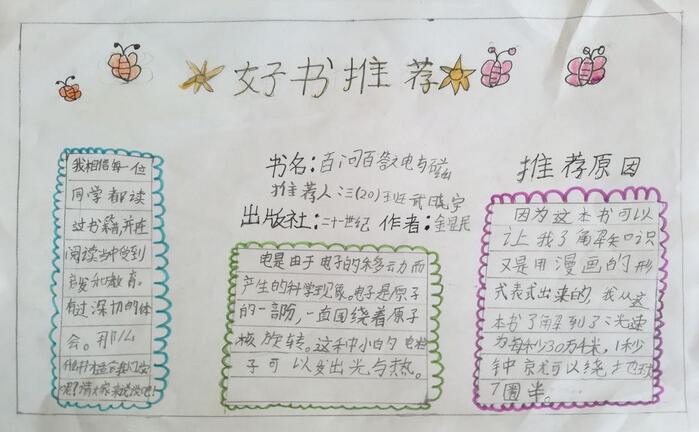 好书推荐
我相信每一位
同学都读
过书籍,并在
阅读当中受到
启发和教育。
有过深切的体
会。那么
请大家来说说吧!
书名:百问百答电与磁
推荐人:三(20)班武晓宇
出版社:二十一世纪 作者:金显民
电是由于电子的移动而
产生的科学现象。电子是原子
的一部份,一直围绕着原子
核旋转。这种小的电粒
子可以变出光与热。
推荐原因
因为这本书可以
让我了解知识
又是用漫画的形
式表式出来的,我从这
本书了解到了:光速
为每秒30万千米,1秒
钟就可以绕地球
7圈半。